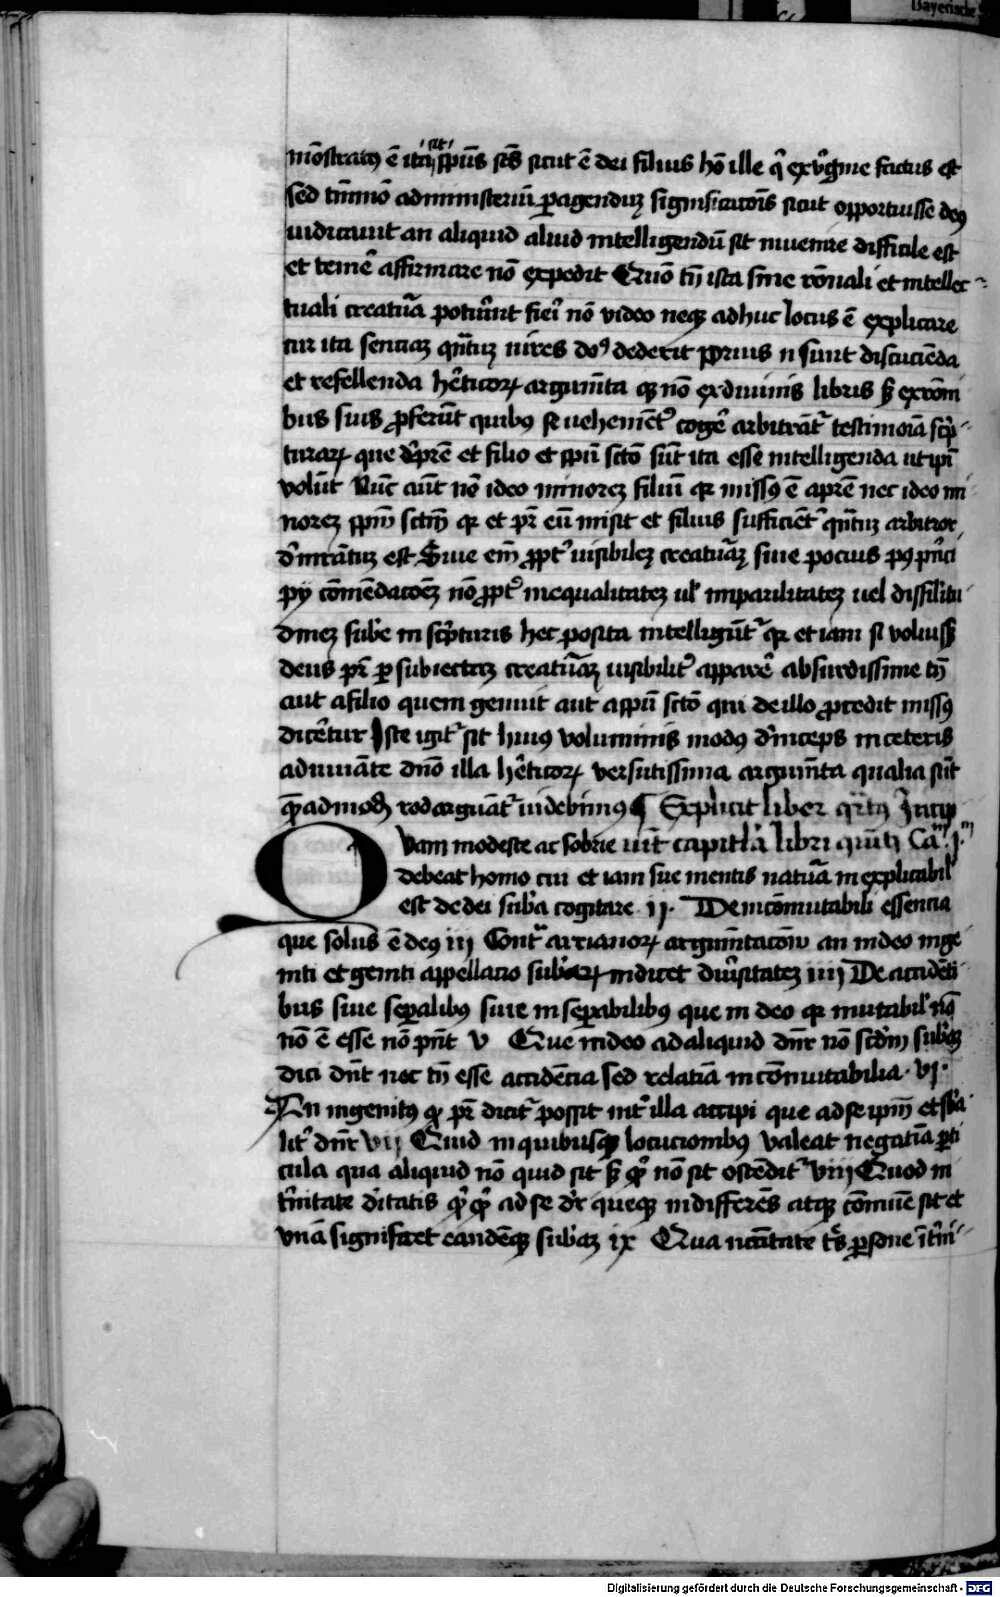 Bayerische
mōstratꝯ ē ita sit spūs scs̄ sicut ē dei filius hō ille q̄ ex v̄gīne factus est
sed tm̄mō administeriū ꝑagenduꝫ significatōis sicut opportuisse deꝯ
iudicauit an aliquid aliud intelligendū sit inuenire difficile est
et temē affirmare nō expedit Quō tn̄ ista sine rōnali et intellec-
tuali creatura potuīnt fieī nō video neqꝫ adhuc locus ē explicare
cur ita senciaꝫ qn̄tuꝫ uires deꝯ dederit Prius n̄ sunt discuciēda
et refellenda hēticoꝝ argumīta qꝫ nō ex diuinis libris sꝫ ex rōni-
bus suis ꝓferūt quibꝯ se uehemēt᷑ cogē arbitrāt᷑ testimoīa sc̄p-
turaꝝ que d̄ prē et filio et spū scto sūt ita esse intelligenda ut ipī
volūt Nūc aūt nō ideo minoreꝫ filiū qꝛ missꝯ ē a prē nec ideo mi
noreꝫ spm̄ sctm̄ qꝛ et pr̄ eū misit et filius sufficiēt᷑ qn̄tuꝫ arbitror
dm̄rātuꝫ est Siue em̄ ꝓpt᷑ uisibileꝫ creaturaꝫ siue pocius ꝓꝑ pn̄ci
py cōmēdacōeꝫ nō ꝓpt᷑ inequalitateꝫ ul̄ imparilitateꝫ uel dissil̄itu-
dineꝫ sube in sc̄pturis hec posita intelligūt᷑ qꝛ et iam si voluisꝫ
deus pr̄ ꝑ subiectaꝫ creaturaꝫ uisibilit᷑ apparē absurdissime tn̄
aut a filio quem genuit aut a spū scto qui de illo ꝓcedit missꝯ
dicētur Iste igit᷑ sit huiꝯ voluminis modꝯ dīnceps in ceteris
adiuuāte dn̄o illa hēticoꝝ versutissima argumīta qualia sūt
quēadmodꝫ redarguāt᷑ uidebimꝯ ¶ Explicit liber qr̄tꝯ Incip
Quam modeste ac sobrie iūt capitl̄a libri qūīti Cam̄ Im̄
debeat homo cui et iam sue mentis natura inexplicabil̄
est de dei sub̄a cogitare ii. De incōmutabili essencia
que solus ē deꝯ iii Cont̄ arrianoꝝ argumītacōeꝫ an in deo inge-
niti et geniti appellacio sub̄aꝝ indicet diūsitateꝫ iiii De accidēti
bus siue seꝑalibꝯ siue inseꝑabilibꝯ que in deo qꝛ mutabil̄ nā
nō ē esse nō pn̄t v Que in deo ad aliquid dn̄r nō scdm̄ sub̄aꝫ
dici dn̄t nec tn̄ esse accidēcia sed relatīa incōmutabilia. vi.
An ingenitꝯ qꝫ pr̄ dicit᷑ possit int᷑ illa accipi que ad se ipm̄ et sb̄a
lit᷑ dn̄r vii Quid in quibusqꝫ locucionibꝯ valeat negatīa ꝑti
cula qua aliquid nō quid sit sꝫ qꝫ nō sit ostēdit᷑ viii Quod in
t̄nitate dītatis qꝫ qꝫ ad se dr̄ queqꝫ indifferēs atqꝫ cōmūe sit et
vnā significet eandēqꝫ sub̄aꝫ ix Qua nec̄citate t̄s ꝑsone ī t̄ni-
Digitalisierung gefördert durch die Deutsche Forschungsgemeinschaft - DFG